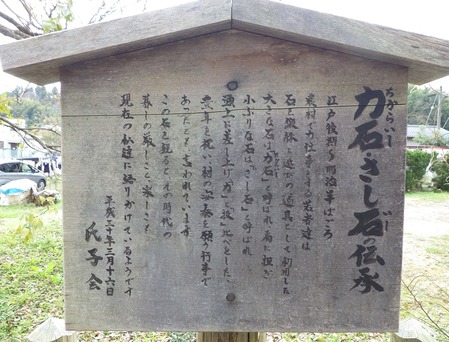 力石さし石の伝承
ちからいし
いし
江戸後期~明治半ばごろ
農村で力仕事をする若者達は
石を鍛錬と遊びの道具として利用した
大きな石は「力石」と呼ばれ肩に担ぎ
小ぶりな石は「さし石」と呼ばれ
頭上に差し上げ「力」と「技」比べをした、
豊年を祝い、村の安泰を願う行事で
あったとも言われています
この石を観るとその時代の
暮しの厳しさと楽しさを
現在の私達に語りかけているようです
平成三十年三月十六日
氏子会